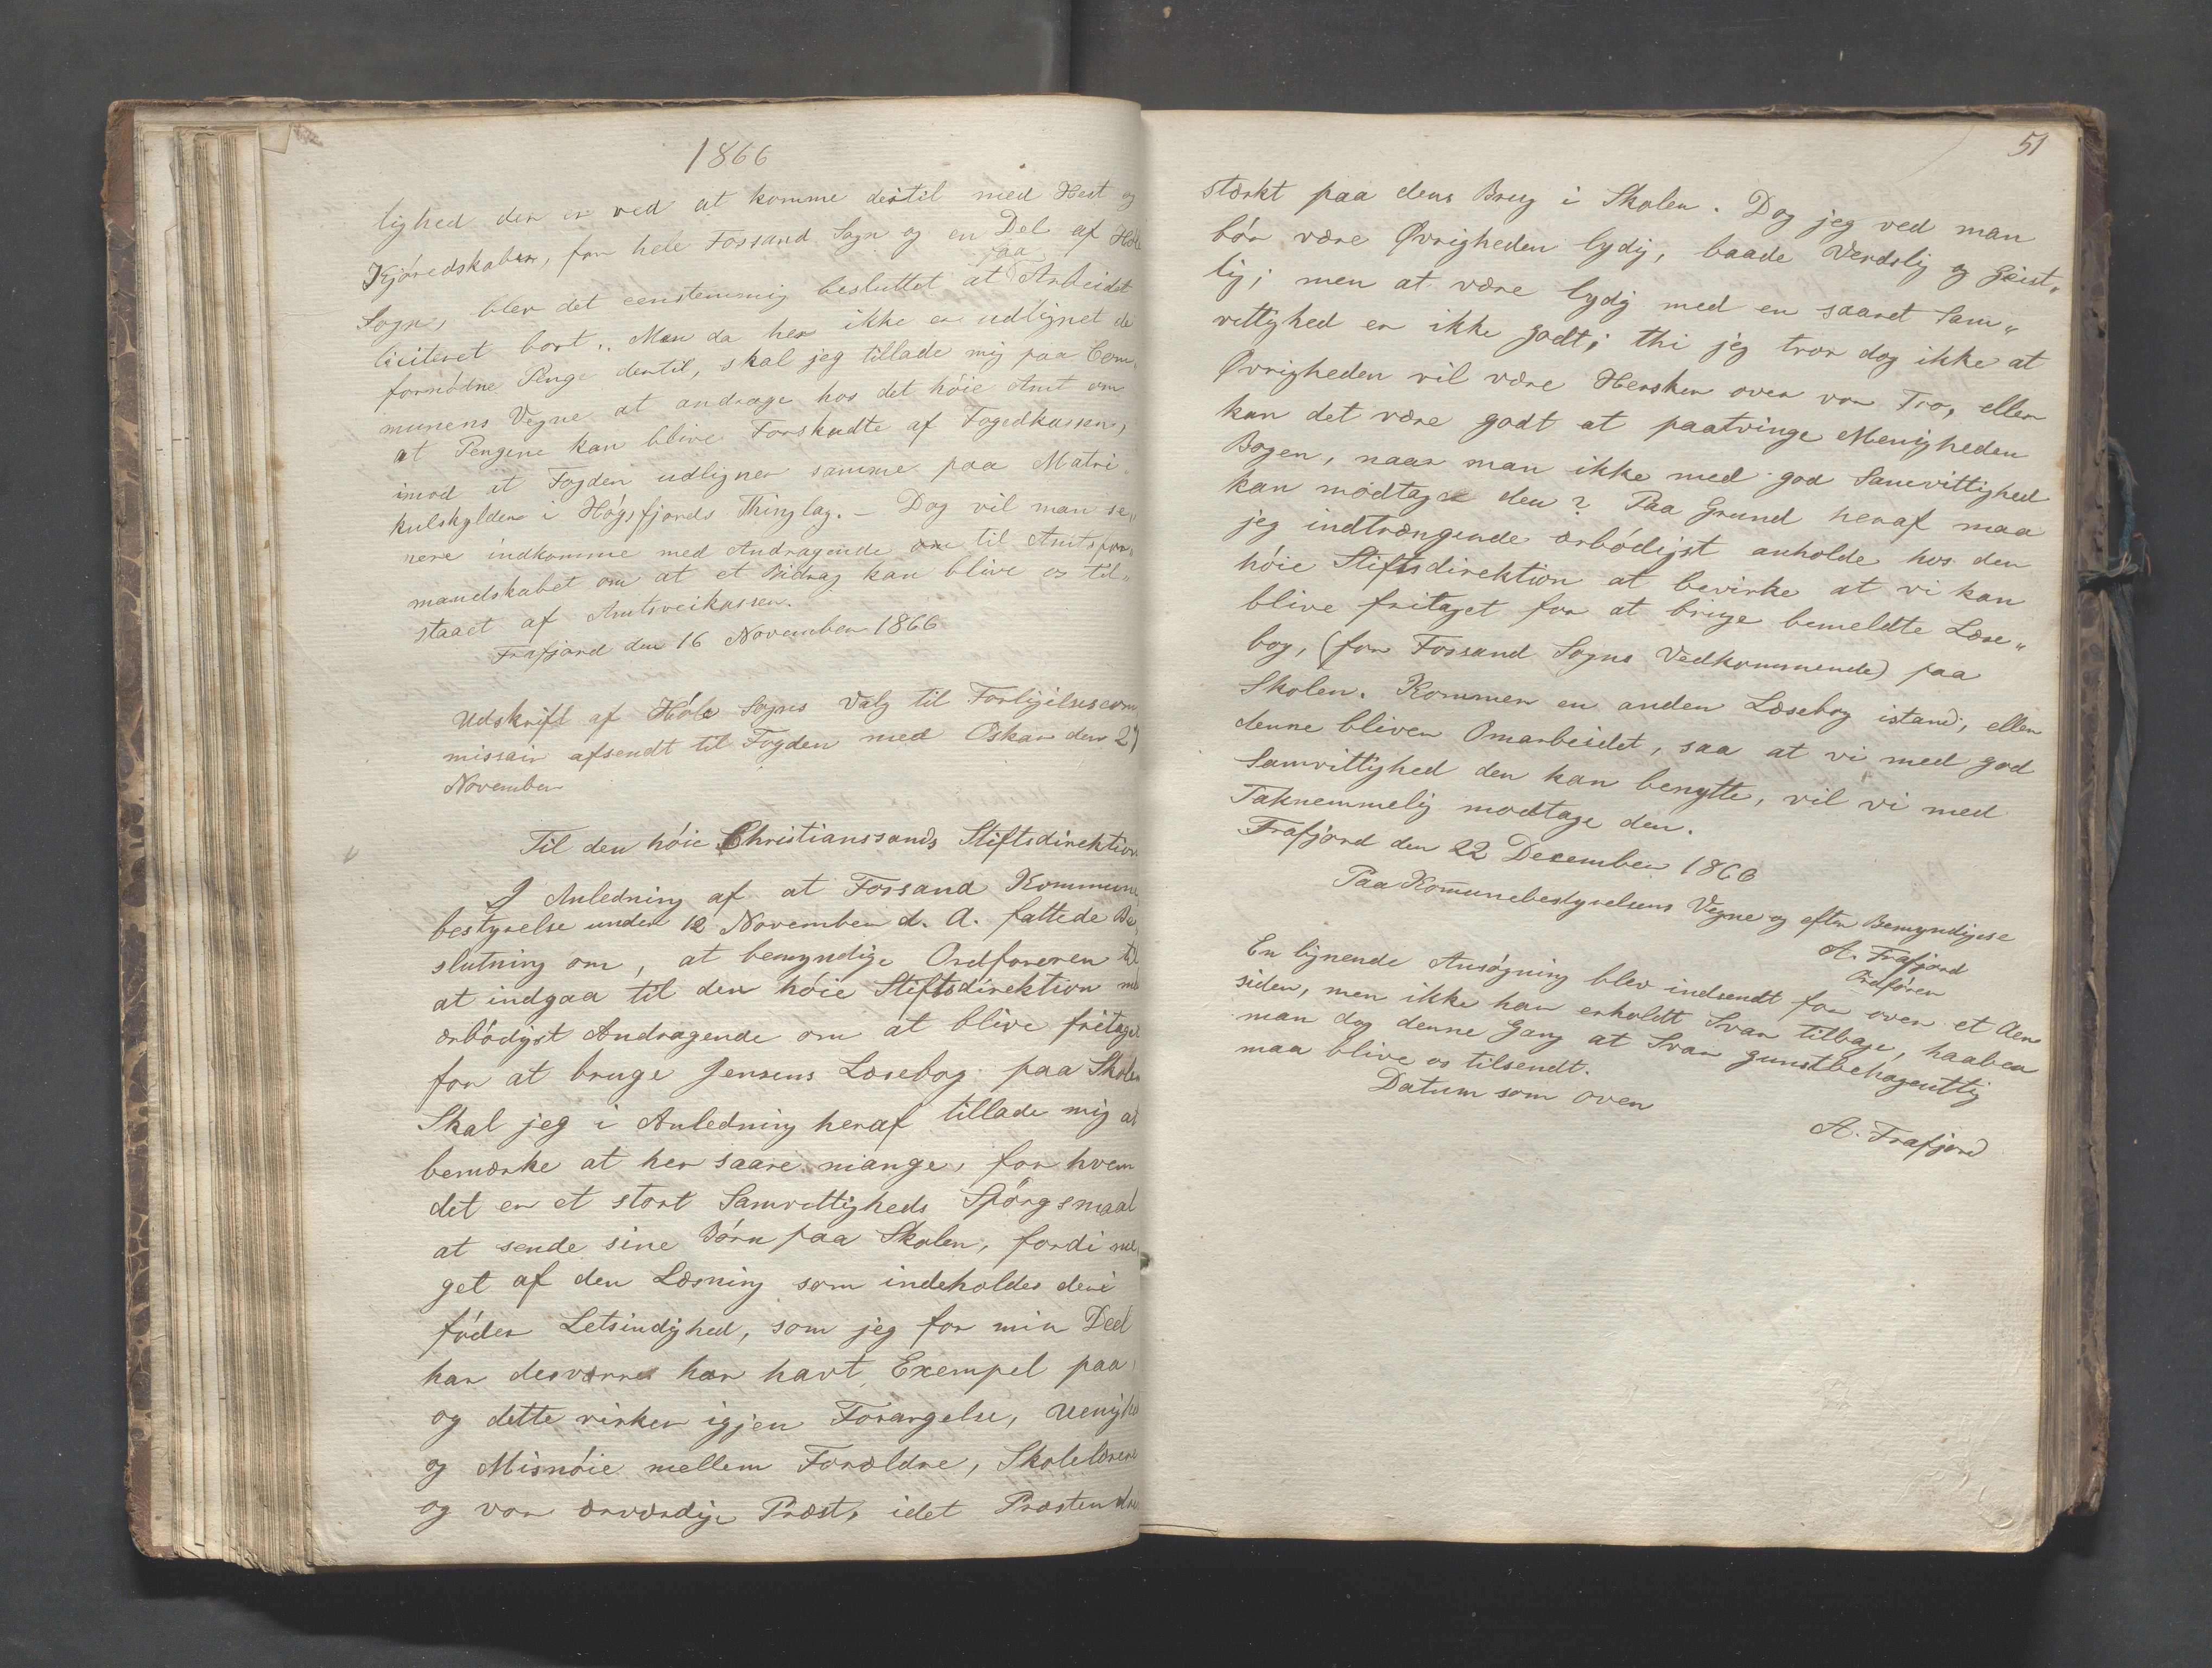 1866
lighed der er ved at komme dertil med Hest og
Kjøredskaber, for hele Fossand Sogn og en Del af Høle
Sogn, blev det eenstemmig besluttet at faa Arbeidet
liciteret bort.. Men da her ikke er udlignet de
fornødne Penge dertil, skal jeg tillade mig paa Com„
munens Vegne at andrage hos det høie Amt om
at Pengene kan blive Forskudte af Fogedkassen,
imod at Fogden udligner samme paa Matri„
kulskylden i Høgsfjords Thinglag. – Dog vil man se„
nere indkomme med Andragende om til Amtsfor„
mandskabet om at et Bidrag kan blive os til„
staaet af Amtsveikassen.
Frafjord den 16 November 1866
Udskrift af Høle Sogns Valg til Forligelsescom
missair afsendt til Fogden med Oskar den 27
November
Til den høie Christianssands Stiftsdirektion
I Anledning af at Fossand Kommune
bestyrelse under 12 November d. A. fattede Be„
slutning om, at bemyndige Ordføreren til
at indgaa til den høie Stiftsdirektion med
ærbødigst Andragende om at blive fritaget
for at bruge Jensens Læsebog paa Skolen
Skal jeg i Anledning heraf tillade mig at
bemærke at her saare mange, for hvem
det er et stort Samvittigheds Spørgsmaal
at sende sine Børn paa Skolen, fordi me„
get af den Læsning som indeholdes deri
føder Letsindighed, som jeg for min Deel
har desværre har havt Exempel paa,
og dette virker igjen Forargelse, Uenighed
og Misnøie mellem Forældre, Skolelærere
og vor ærværdige Præst, idet Præsten
51
stærkt paa dens Brug i Skolen. Dog jeg ved man
bør være Øvrigheden lydig, baade Verdslig og Geist„
lig; men at være lydig med en saaret Sam„
vittighed er ikke godt; thi jeg tror dog ikke at
Øvrigheden vil være Hersker over vor Tro, eller
kan det være godt at paatvinge Menigheden
Bogen, naar man ikke med god Samvittighed
kan modtage den? Paa Grund heraf maa
jeg indtrængende ærbødigst anholde hos den
høie Stiftsdirektion at bevirke at vi kan
blive fritaget for at bruge bemeldte Læse„
bog, (for Fossand Sogns Vedkommende) paa
Skolen. Kommer en anden Læsebog istand, eller
denne bliver Omarbeidet, saa at vi med god
Samvittighed den kan benytte, vil vi med
Taknemmelig modtage den.
Frafjord den 22 December 1866
Paa Kommunebestyrelsens Vegne og efter Bemyndigese
A. Frafjord
Ordfører
En lignende Ansøgning blev indsendt for over et Aar
siden, men ikke har erholdt Svar tilbage, haaber
man dog denne Gang at Svar gunstbehagenttig
maa blive os tilsendt.
Datum som oven
A. Frafjord